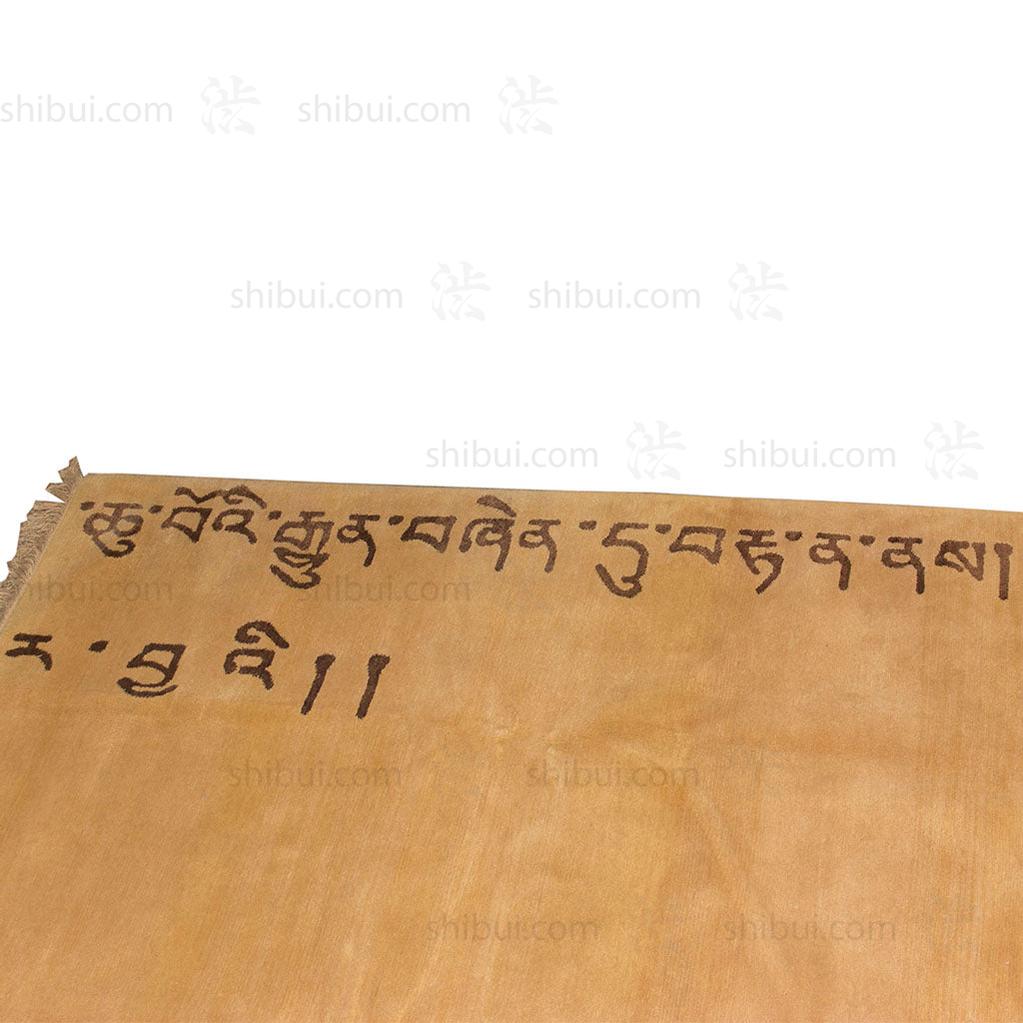 shibui.com 渋 shibui.com 渋
shibui.com 渋 shibui.com 渋
shibui.com 渋 shibui.com 渋
་ཆུ་བོའི་རྒྱུན་བཞིན་དུ་བརྟ་ན་ནས།
shibui.com shibui.com
ར་བྱའི།།
shibui.com shibui.com
shibui.com shibui.com